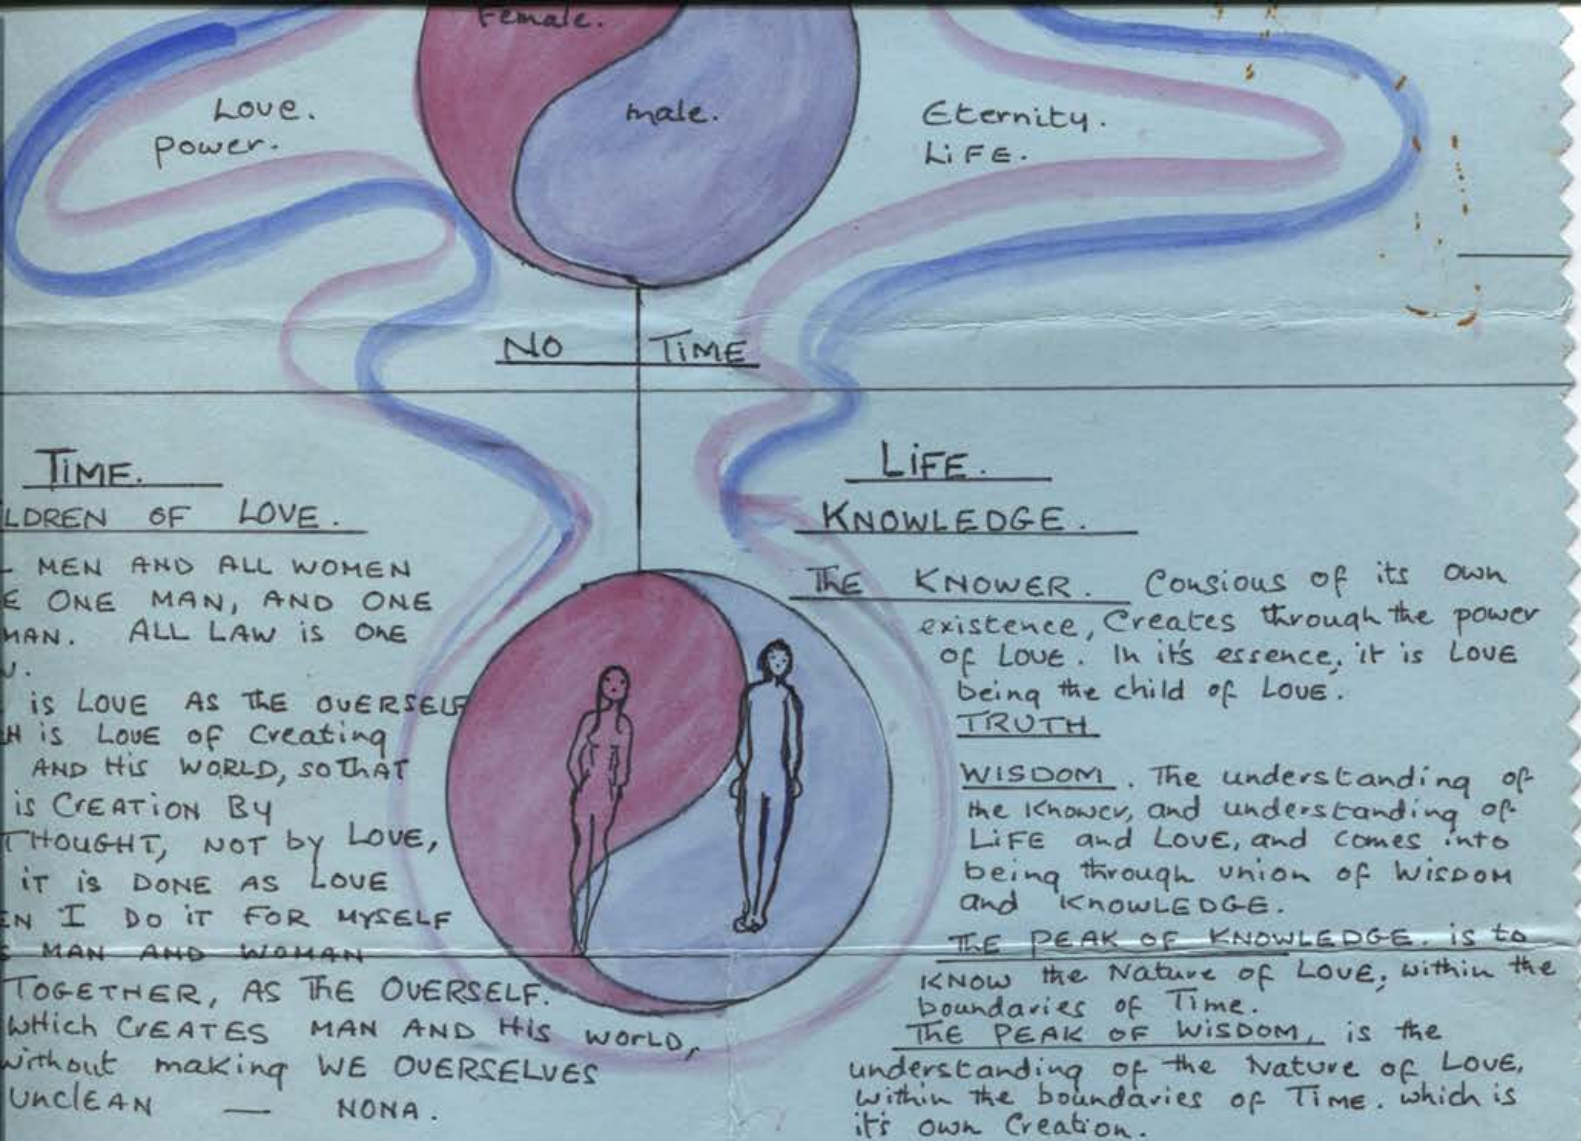 Female.
male.
Love.
Power.
Eternity.
LiFE.
NO TiME
TiME.
LDREN OF LOVE.
MEN AND ALL WOMEN
E ONE MAN, AND ONE
MAN. ALL LAW is ONE
is LOVE AS THE OVERSELF
H is LOVE OF Creating
AND His WORLD, SO THAT
is CREATION BY
THOUGHT, NOT by LOVE,
iT is DONE AS LOVE
EN I DO iT FOR MYSELF
S MAN AND WOMAN
TOGETHER, AS THE OVERSELF.
WHich CREATES MAN AND His WORLD,
Without making WE OVERSELVES
UnclEAN — NONA.
LiFE.
KNOWLEDGE.
THE KNOWER. Consious of its own
existence, Creates through the power
of Love. In it's essence, it is LOVE
being the child of LOVE.
TRUTH
WISDOM. The understanding of
the Knower, and understanding of
LiFE and LOVE, and comes into
being through union of WISDOM
and KNOWLEDGE.
THE PEAK OF KNOWLEDGE. is to
KNOW the Nature of LOVE, within the
boundaries of Time.
THE PEAK OF WISDOM, is the
understanding of the Nature of LOVE,
within the boundaries of TiME. which is
it's own Creation.